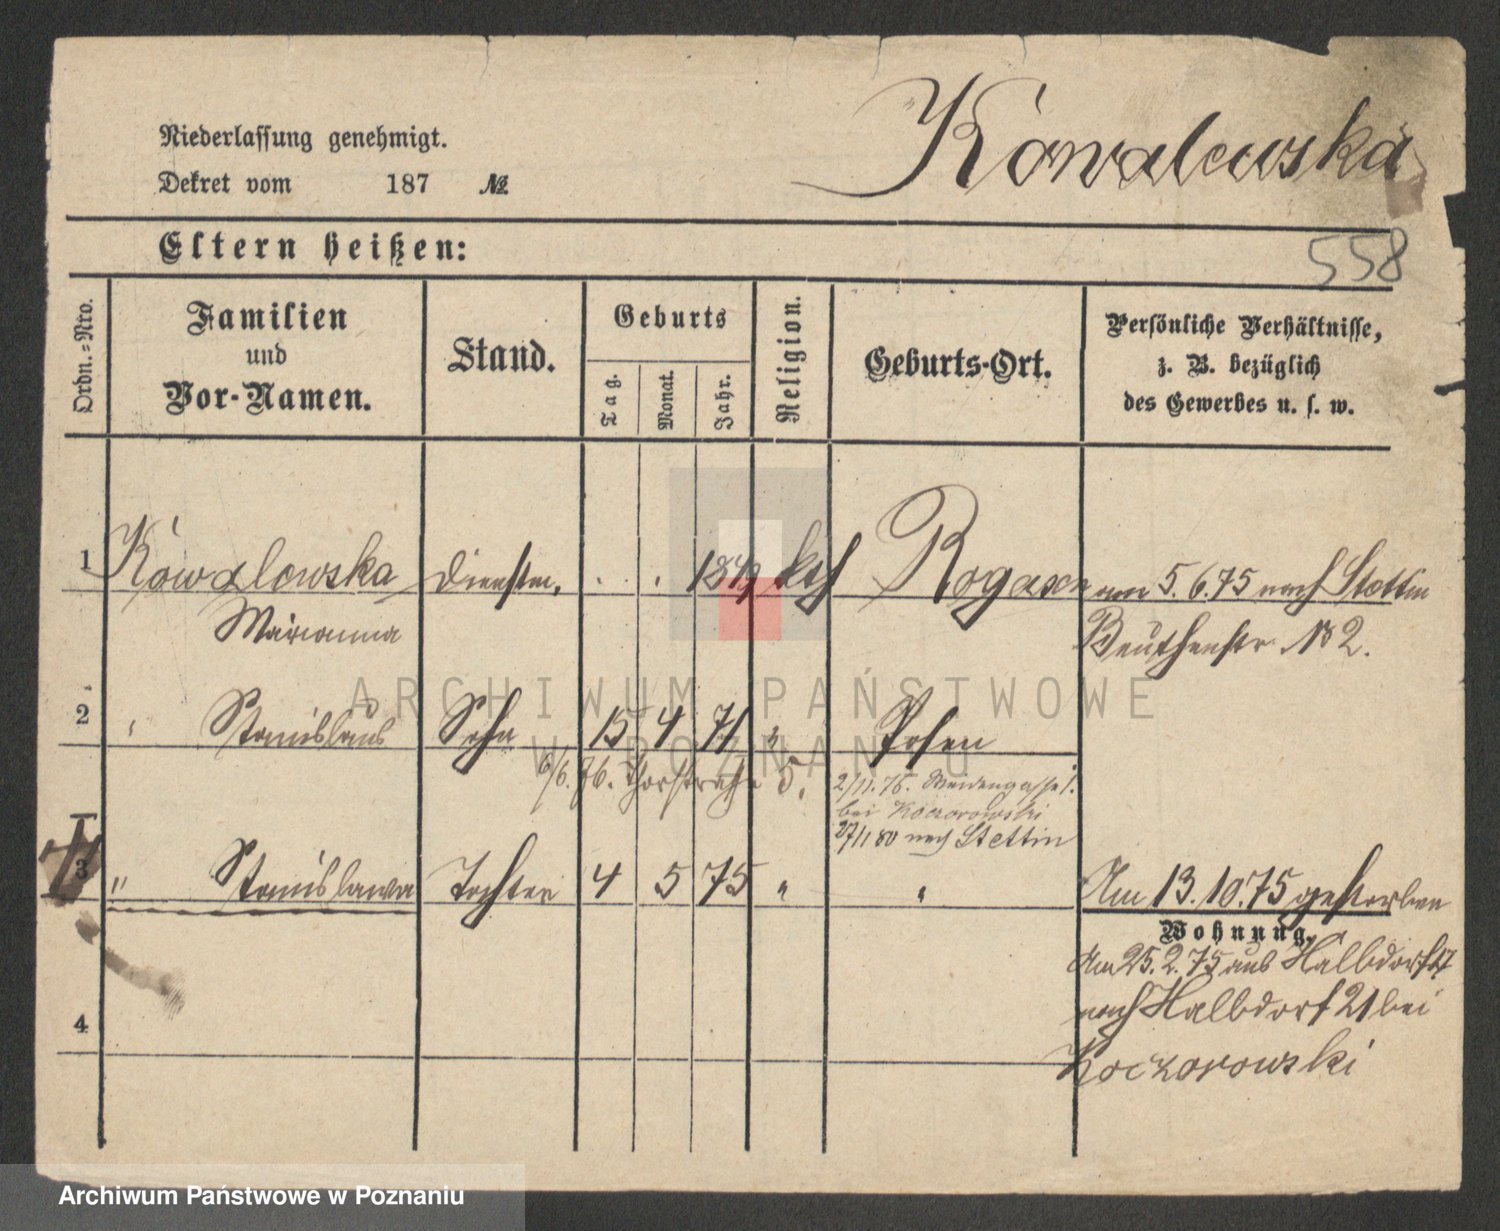 Niederlassung genehmigt.
Dekret vom 187 №
Kowalewska
558
Eltern heißen:
Ordn.-Nro.
Familien
und
Vor-Namen.
Stand.
Geburts
Tag.
Monat.
Jahr.
Religion.
Geburts-Ort.
Persönliche Verhältnisse,
z. B. bezüglich
des Gewerbes u. s. w.
1 Kowalewska Dienstm. . . 1849 kth Rogasen am 5.6.75 nach Stettin
Marianna Beuthenstr № 2.
2 " Stanislaus Sohn 15 4 71 " Posen
6/6. 76. Thorstraße 5.
2/11. 76. Weidengasse 1.
bei Koczorowski
27/1 80 nach Stettin
3 " Stanislawa Tochter 4 5 75 " " Am 13.10.75 gestorben
Wohnung.
Am 25.2.75 aus Halbdorf 17
nach Halbdorf 21 bei
Koczorowski
4
ARCHIWUM PAŃSTWOWE
W POZNANIU
Archiwum Państwowe w Poznaniu